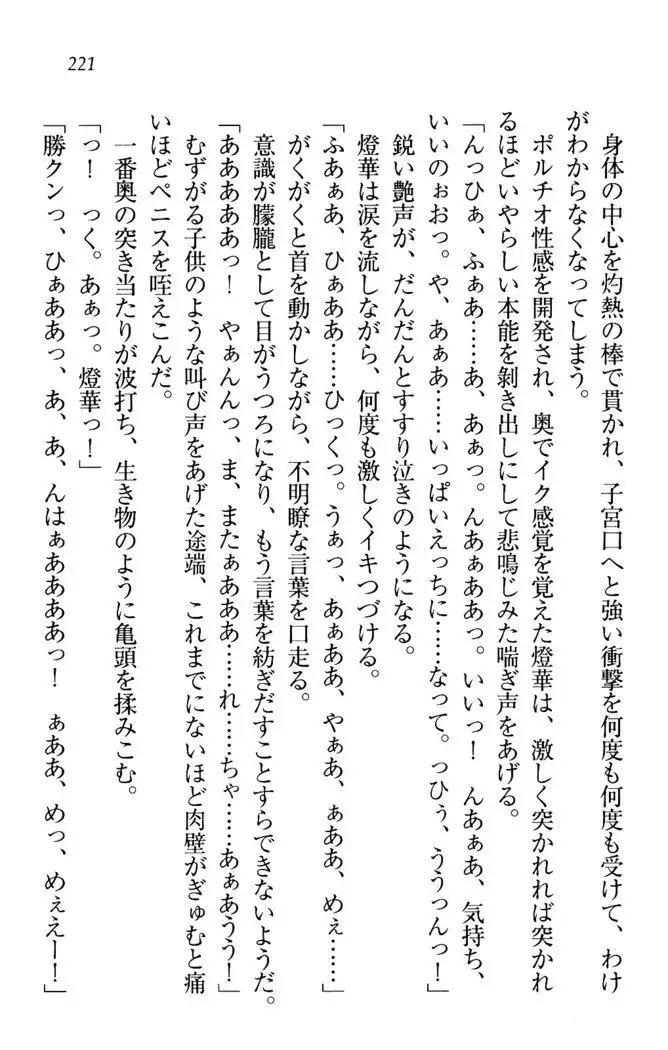 221
身体の中心を灼熱の棒で貫かれ、子宮口へと強い衝撃を何度も何度も受けて、わけ
がわからなくなってしまう。
ポルチオ性感を開発され、奥でイク感覚を覚えた燈華は、激しく突かれれば突かれ
るほどいやらしい本能を剝き出しにして悲鳴じみた喘ぎ声をあげる。
「んっひぁ、ふぁあ……あ、あぁっ。んあぁああっ。いいっ！　んあぁあ、気持ち、
いいのぉおっ。や、あぁあ……いっぱいえっちに……なって。っひぅ、ううっんっ！」
鋭い艶声が、だんだんとすすり泣きのようになる。
燈華は涙を流しながら、何度も激しくイキつづける。
「ふあぁあ、ひぁああ……ひっくっ。うぁっ、あぁああ、やぁあ、ぁああ、めぇ……」
がくがくと首を動かしながら、不明瞭な言葉を口走る。
意識が朦朧として目がうつろになり、もう言葉を紡ぎだすことすらできないようだ。
「あああああっ！　やぁんんっ、ま、またぁあああ……れ……ちゃ……あぁあうう！」
むずがる子供のような叫び声をあげた途端、これまでにないほど肉壁がぎゅむと痛
いほどペニスを咥えこんだ。
一番奥の突き当たりが波打ち、生き物のように亀頭を揉みこむ。
「っ！　っく。あぁっ。燈華っ！」
「勝クンっ、ひぁああっ、あ、あ、んはぁああああっ！　ぁああ、めっ、めぇえー！」